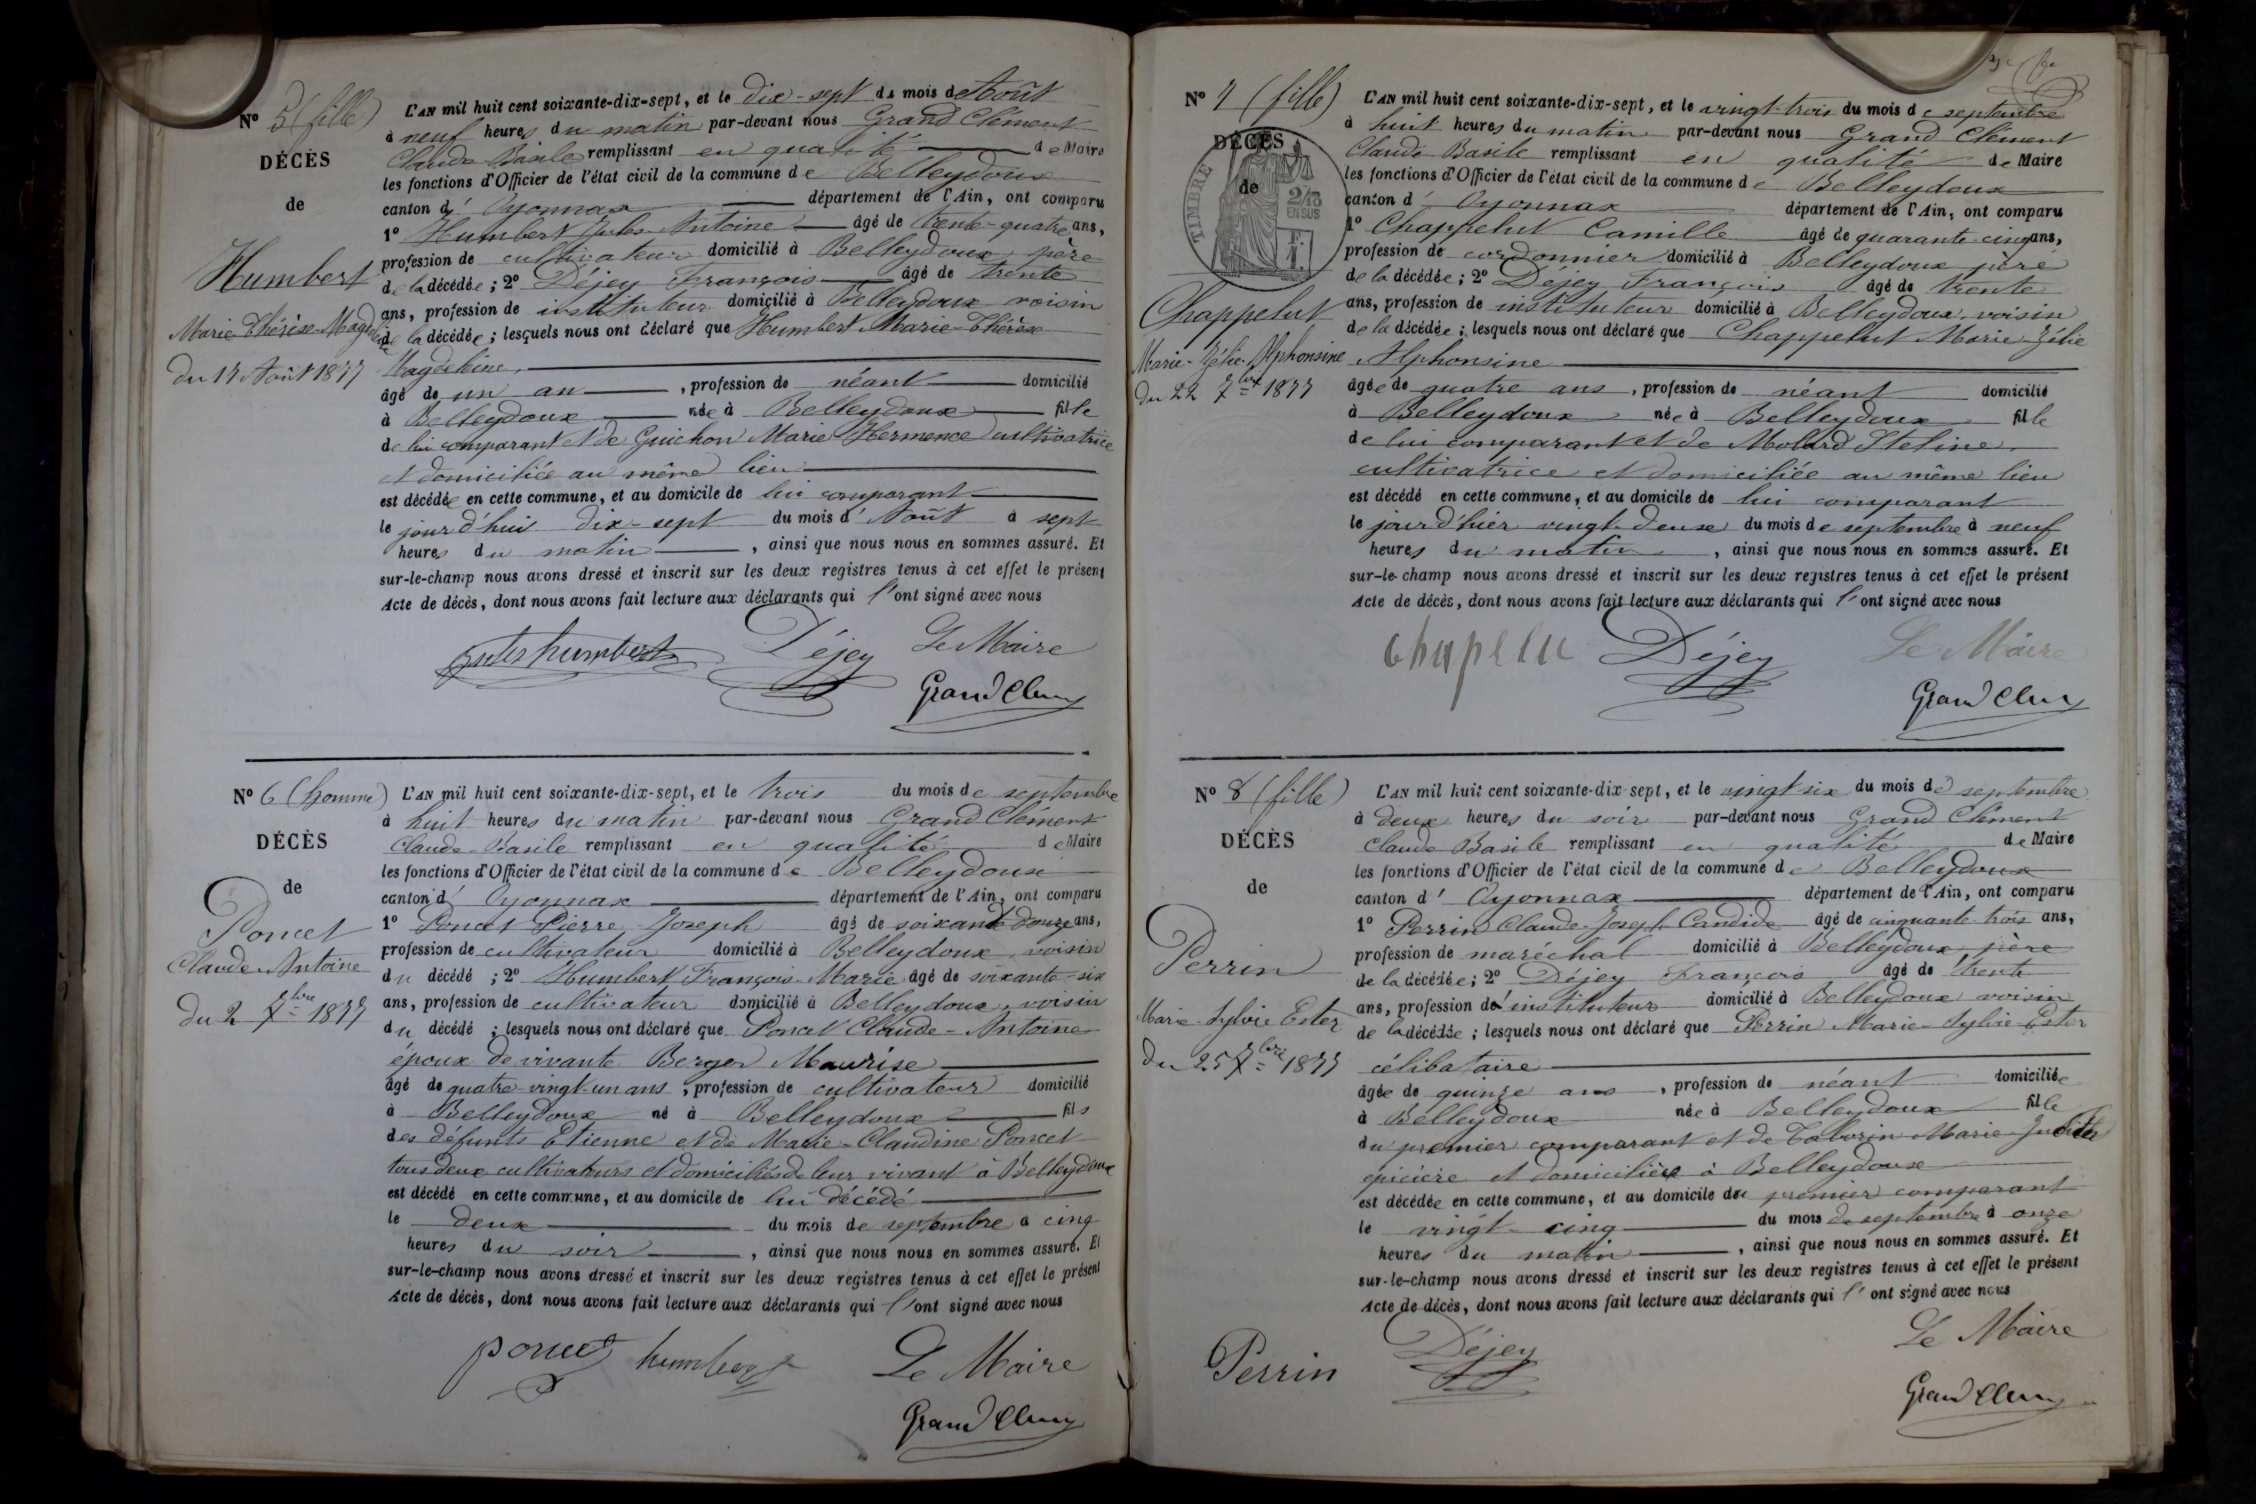 Nº 5 (fille)
DÉCÈS
de
Humbert
Marie Thérèse Magdeleine
du 17 Août 1877
L'AN mil huit cent soixante-dix-sept, et le dix-sept du mois d'Août
à neuf heures du matin par-devant nous Grand Clément
Claude Basile remplissant en qualité de Maire
les fonctions d'Officier de l'état civil de la commune de Belleydoux
canton d'Oyonnax département de l'Ain, ont comparu
1º Humbert Jules Antoine âgé de trente-quatre ans,
profession de cultivateur domicilié à Belleydoux père
de la décédée ; 2º Déjey François âgé de trente
ans, profession de instituteur domicilié à Belleydoux voisin
de la décédée ; lesquels nous ont déclaré que Humbert Marie-Thérèse
Magdeleine,
âgé de un an, profession de néant domicilié
à Belleydoux née à Belleydoux fille
de lui comparant et de Guichon Marie Hermence cultivatrice
et domiciliée au même lieu
est décédée en cette commune, et au domicile de lui comparant
le jourd'hui dix-sept du mois d'Août à sept
heures du matin, ainsi que nous nous en sommes assuré. Et
sur-le-champ nous avons dressé et inscrit sur les deux registres tenus à cet effet le présent
Acte de décès, dont nous avons fait lecture aux déclarants qui l'ont signé avec nous
jules humbert Déjey Le Maire
Grand Clem
Nº 6 (homme)
DÉCÈS
de
Poncet
Claude-Antoine
du 2 7bre 1877
L'AN mil huit cent soixante-dix-sept, et le trois du mois de septembre
à huit heures du matin par-devant nous Grand Clément
Claude Basile remplissant en qualité de Maire
les fonctions d'Officier de l'état civil de la commune de Belleydoux
canton d'Oyonnax département de l'Ain, ont comparu
1º Poncet Pierre Joseph âgé de soixante douze ans,
profession de cultivateur domicilié à Belleydoux voisin
du décédé ; 2º Humbert François-Marie âgé de soixante-six
ans, profession de cultivateur domicilié à Belleydoux, voisin
du décédé ; lesquels nous ont déclaré que Poncet Claude-Antoine
époux de vivante Berger Maurise
âgé de quatre-vingt-un ans, profession de cultivateur domicilié
à Belleydoux né à Belleydoux fils
des défunts Etienne et de Marie-Claudine Poncet
tous deux cultivateurs et domiciliés de leur vivant à Belleydoux
est décédé en cette commune, et au domicile de lui décédé
le deux du mois de septembre à cinq
heures du soir, ainsi que nous nous en sommes assuré. Et
sur-le-champ nous avons dressé et inscrit sur les deux registres tenus à cet effet le présent
Acte de décès, dont nous avons fait lecture aux déclarants qui l'ont signé avec nous
poncet humbert Le Maire
Grand Clem
Nº 7 (fille)
DÉCÈS
de
TIMBRE
2/10
EN SUS
Chappelut
Marie-Zélie-Alphonsine
du 22 7bre 1877
L'AN mil huit cent soixante-dix-sept, et le vingt-trois du mois de septembre
à huit heures du matin par-devant nous Grand Clément
Claude Basile remplissant en qualité de Maire
les fonctions d'Officier de l'état civil de la commune de Belleydoux
canton d'Oyonnax département de l'Ain, ont comparu
1º Chappelut Camille âgé de quarante-cinq ans,
profession de cordonnier domicilié à Belleydoux père
de la décédée ; 2º Déjey François âgé de trente
ans, profession de instituteur domicilié à Belleydoux, voisin
de la décédée ; lesquels nous ont déclaré que Chappelut Marie Zélie
Alphonsine
âgée de quatre ans, profession de néant domicilié
à Belleydoux née à Belleydoux fille
de lui comparant et de Molard
cultivatrice et domiciliée au même lieu
est décédé en cette commune, et au domicile de lui comparant
le jour d'hier vingt-deux du mois de septembre à neuf
heures du matin, ainsi que nous nous en sommes assuré. Et
sur-le-champ nous avons dressé et inscrit sur les deux registres tenus à cet effet le présent
Acte de décès, dont nous avons fait lecture aux déclarants qui l'ont signé avec nous
Déjey Le Maire
Grand Clem
Nº 8 (fille)
DÉCÈS
de
Perrin
Marie-Sylvie Ester
du 25 7bre 1877
L'AN mil huit cent soixante-dix-sept, et le vingt-six du mois de septembre
à deux heures du soir par-devant nous Grand Clément
Claude Basile remplissant en qualité de Maire
les fonctions d'Officier de l'état civil de la commune de Belleydoux
canton d'Oyonnax département de l'Ain, ont comparu
1º Perrin Claude-Joseph Candide âgé de cinquante-trois ans,
profession de maréchal domicilié à Belleydoux, père
de la décédée ; 2º Déjey François âgé de trente
ans, profession d'instituteur domicilié à Belleydoux voisin
de la décédée ; lesquels nous ont déclaré que Perrin Marie-Sylvie-Ester
célibataire
âgée de quinze ans, profession de néant domiciliée
à Belleydoux née à Belleydoux fille
du premier comparant et de Marie-
épicière et domiciliée à Belleydoux
est décédée en cette commune, et au domicile du premier comparant
le vingt-cinq du mois de septembre à onze
heures du matin, ainsi que nous nous en sommes assuré. Et
sur-le-champ nous avons dressé et inscrit sur les deux registres tenus à cet effet le présent
Acte de décès, dont nous avons fait lecture aux déclarants qui l'ont signé avec nous
Perrin Déjey Le Maire
Grand Clem